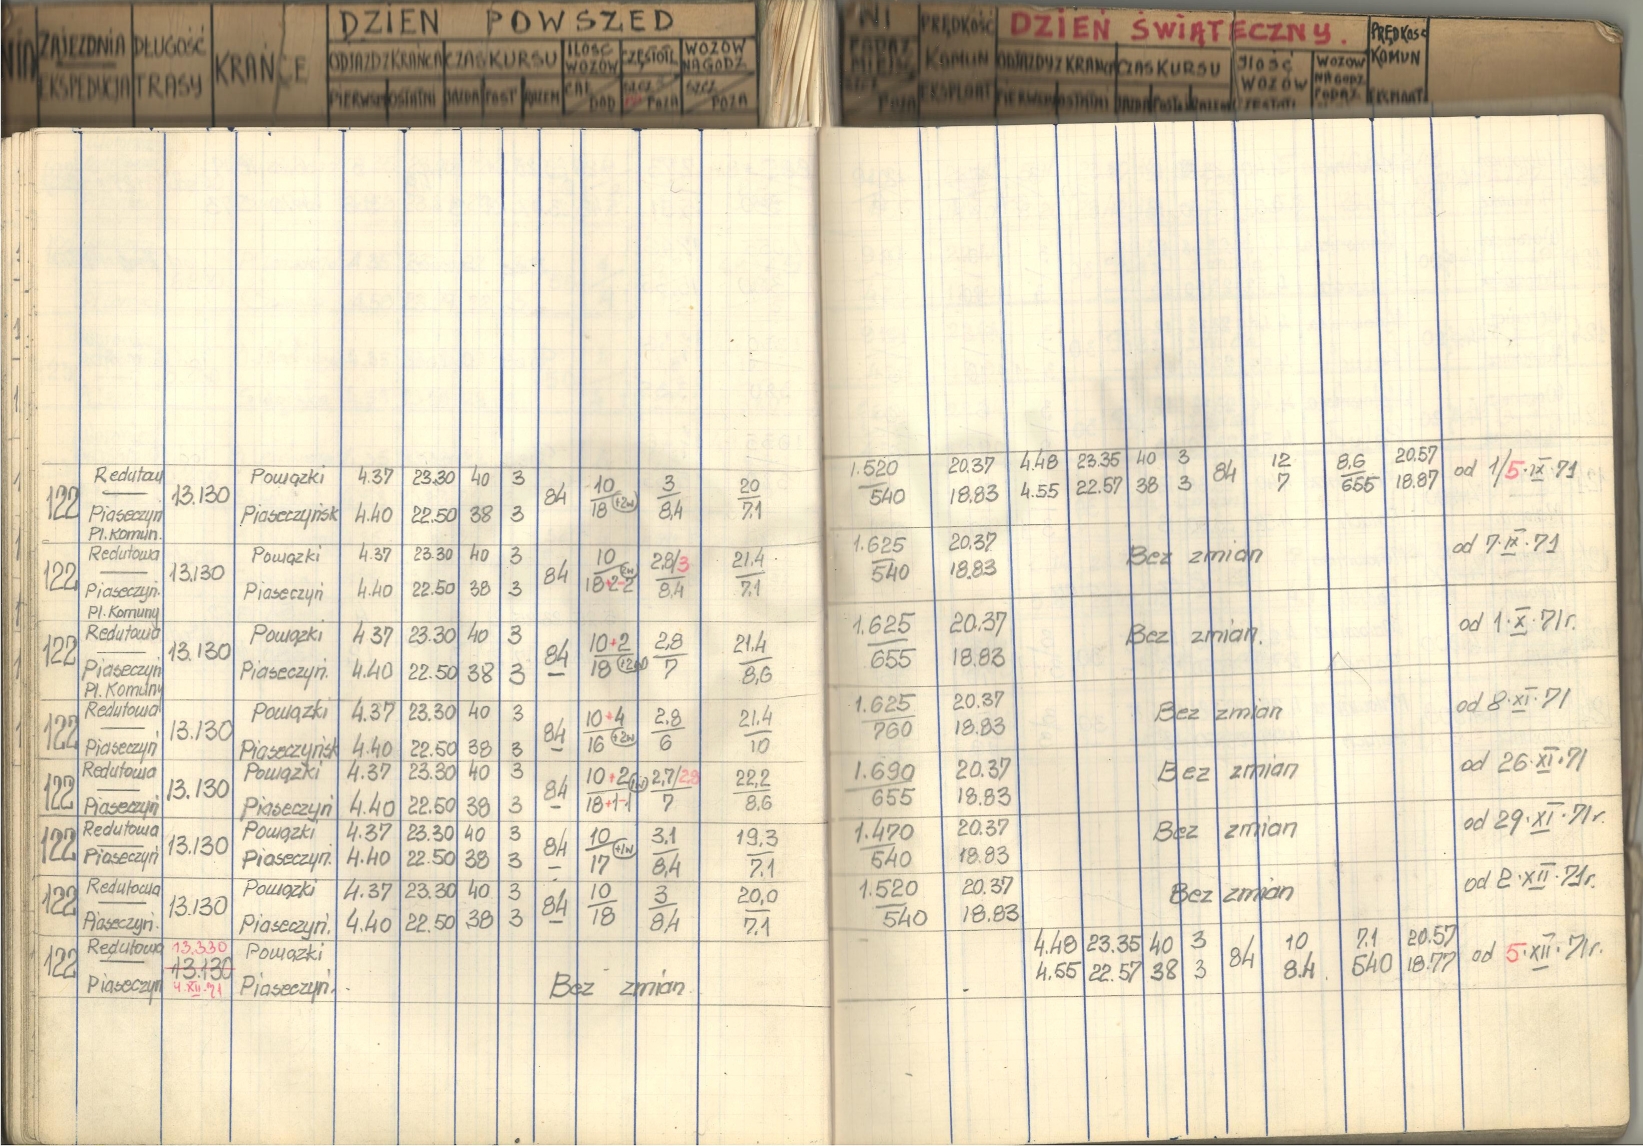 DZIEŃ POWSZED
NI PRĘDKOŚĆ DZIEŃ ŚWIĄTECZNY. PRĘDKOŚĆ
ZAJEZDNIA DŁUGOŚĆ KRAŃCE ODJAZD Z KRAŃCA CZAS KURSU ILOŚĆ WOZÓW CZĘSTOTL WOZÓW NA GODZ
KOMUN ODJAZDY Z KRAŃCA CZAS KURSU ILOŚĆ WOZÓW WOZÓW NA GODZ KOMUN
EKSPEDYCJA TRASY PIERWSZ OSTATNI JAZDA POST RAZEM CAŁ DOD SZCZ POZA SZCZ POZA
POZA EKSPLOAT PIERWSZ OSTATNI JAZDA
122 Redutow 13.130 Powązki 4.37 23.30 40 3 84 10 3 20 1.520 20.37 4.48 23.35 40 3 84 12 8,6 20.57 od 1/5·IX·71
Piaseczyń Piaseczyńsk 4.40 22.50 38 3 18 (+2w) 8,4 7.1 540 18.83 4.55 22.57 38 3 7 655 18.87
Pl. Komun.
122 Redutowa 13.130 Powązki 4.37 23.30 40 3 84 10 (2w) 2,8/3 21.4 1.625 20.37 Bez zmian od 7·IX·71
Piaseczyń. Piaseczyń 4.40 22.50 38 3 18+2-2 8,4 7.1 540 18.83
Pl. Komuny
122 Redutowa 13.130 Powązki 4 37 23.30 40 3 84 10+2 2,8 21.4 1.625 20.37 Bez zmian. od 1·X·71r.
Piaseczyń Piaseczyń. 4.40 22.50 38 3 18 7 8,6 655 18.83
Pl. Komuny
122 Redutowa 13.130 Powązki 4.37 23.30 40 3 84 10+4 2.8 21.4 1.625 20.37 Bez zmian od 8·XI·71
Piaseczyń Piaseczyńsk 4.40 22.50 38 3 16 (+2w) 6 10 760 18.83
122 Redutowa 13.130 Powązki 4.37 23.30 40 3 84 10+2 (1w) 2,7/2,8 22,2 1.690 20.37 Bez zmian od 26·XI·71
Piaseczyń Piaseczyń 4.40 22.50 38 3 18+1-1 7 8.6 655 18.83
122 Redutowa 13.130 Powązki 4.37 23.30 40 3 84 10 3,1 19,3 1.470 20.37 Bez zmian od 29·XI·71r.
Piaseczyń Piaseczyń. 4.40 22.50 38 3 17 (+1w) 8,4 7.1 540 18.83
122 Redutowa 13.130 Powązki 4.37 23.30 40 3 84 10 3 20,0 1.520 20.37 Bez zmian od 2·XII·71r.
Piaseczyń. Piaseczyń. 4.40 22.50 38 3 18 8,4 7,1 540 18.83
122 Redutowa 13.330 Powązki 4.48 23.35 40 3 84 10 7.1 20.57 od 5·XII·71r.
13.130
Piaseczyń 4.XII.71 Piaseczyń. Bez zmian 4.55 22.57 38 3 8.4. 540 18.77